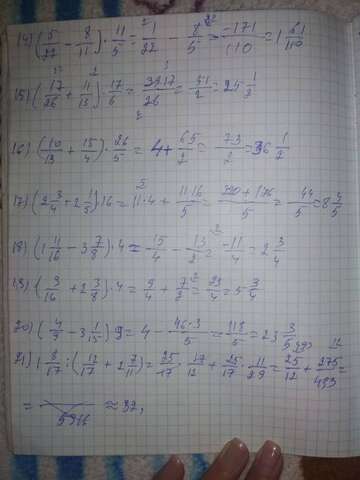 14) (5/22 - 8/11) · 11/5 = 1/22 - 8/5 = -171/110 = 1 61/110
15) (17/26 + 11/13) · 17/6 = 39·17/26 = 51/2 = 25 1/2
16) (10/13 + 15/4) · 26/5 = 4 + 65/2 = 73/2 = 36 1/2
17) (2 3/4 + 2 1/5) · 16 = 11·4 + 11·16/5 = = 44/5 = 8 4/5
18) (1 11/16 - 3 7/8) · 4 = 15/4 - 13/2 = -11/4 = 2 3/4
19) (9/16 + 2 3/8) · 4 = 9/4 + 7/2 = 23/4 = 5 3/4
20) (4/9 - 3 1/15) 9 = 4 - 46·3/5 = 118/5 = 23 3/5
21) 1 8/17 : (12/17 + 2 7/11) = 25/17 · 17/12 + 25/17 · 11/29 = 25/12 + 275/493 =
= ≈ 32,